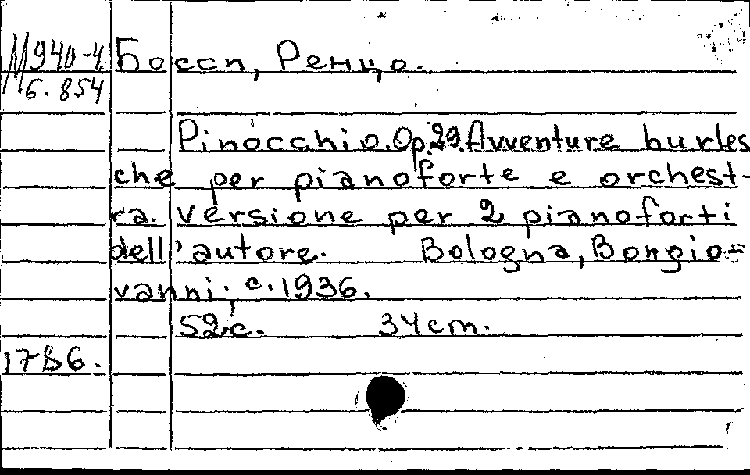 М940-4 Босси, Ренцо.
Б. 854
Pinocchio. Op. 29. Avventure burles
che per pianoforte e orchest-
ra. Versione per 2 pianoforti
dell'autore. Bologna, Bongio-
vanni, c. 1936.
52 с. 34 cm.
1786.